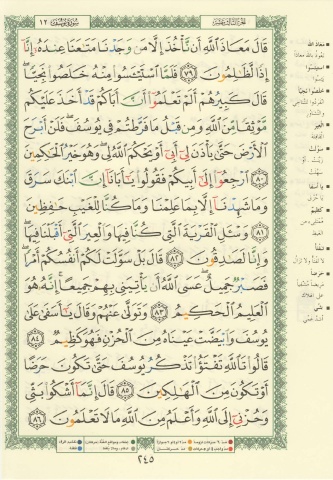 سورة يوسف ١٢
الجزء الثالث عشر
قَالَ مَعَاذَ ٱللَّهِ أَن نَّأْخُذَ إِلَّا مَن وَجَدْنَا مَتَٰعَنَا عِندَهُۥٓ إِنَّآ
إِذًا لَّظَٰلِمُونَ ٧٩ فَلَمَّا ٱسْتَيْـَٔسُوا۟ مِنْهُ خَلَصُوا۟ نَجِيًّا
قَالَ كَبِيرُهُمْ أَلَمْ تَعْلَمُوٓا۟ أَنَّ أَبَاكُمْ قَدْ أَخَذَ عَلَيْكُم
مَّوْثِقًا مِّنَ ٱللَّهِ وَمِن قَبْلُ مَا فَرَّطتُمْ فِى يُوسُفَ فَلَنْ أَبْرَحَ
ٱلْأَرْضَ حَتَّىٰ يَأْذَنَ لِىٓ أَبِىٓ أَوْ يَحْكُمَ ٱللَّهُ لِى وَهُوَ خَيْرُ ٱلْحَٰكِمِينَ
٨٠ ٱرْجِعُوٓا۟ إِلَىٰٓ أَبِيكُمْ فَقُولُوا۟ يَٰٓأَبَانَآ إِنَّ ٱبْنَكَ سَرَقَ
وَمَا شَهِدْنَآ إِلَّا بِمَا عَلِمْنَا وَمَا كُنَّا لِلْغَيْبِ حَٰفِظِينَ
٨١ وَسْـَٔلِ ٱلْقَرْيَةَ ٱلَّتِى كُنَّا فِيهَا وَٱلْعِيرَ ٱلَّتِىٓ أَقْبَلْنَا فِيهَا
وَإِنَّا لَصَٰدِقُونَ ٨٢ قَالَ بَلْ سَوَّلَتْ لَكُمْ أَنفُسُكُمْ أَمْرًا
فَصَبْرٌ جَمِيلٌ عَسَى ٱللَّهُ أَن يَأْتِيَنِى بِهِمْ جَمِيعًا إِنَّهُۥ هُوَ
ٱلْعَلِيمُ ٱلْحَكِيمُ ٨٣ وَتَوَلَّىٰ عَنْهُمْ وَقَالَ يَٰٓأَسَفَىٰ عَلَىٰ
يُوسُفَ وَٱبْيَضَّتْ عَيْنَاهُ مِنَ ٱلْحُزْنِ فَهُوَ كَظِيمٌ ٨٤
قَالُوا۟ تَٱللَّهِ تَفْتَؤُا۟ تَذْكُرُ يُوسُفَ حَتَّىٰ تَكُونَ حَرَضًا
أَوْ تَكُونَ مِنَ ٱلْهَٰلِكِينَ ٨٥ قَالَ إِنَّمَآ أَشْكُوا۟ بَثِّى
وَحُزْنِىٓ إِلَى ٱللَّهِ وَأَعْلَمُ مِنَ ٱللَّهِ مَا لَا تَعْلَمُونَ ٨٦
معاذ الله
نعوذ بالله معاذا
استيئسوا
يئسوا
خلصوا نجيا
العير
القافلة
سولت
يا أسفا
يا حزني
كظيم
تفتأ
حرضا
بثي
٢٤٥